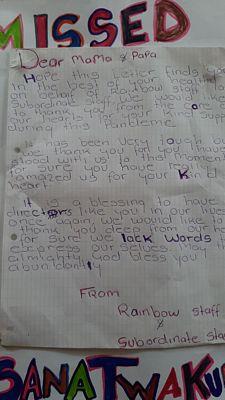 MISSED
Dear MaMa & Papa
Hope this letter finds
in the best of your health
on behalf of Rainbow staff
Subordinate staff, we would like
to thank you from the core
our hearts for your kind supp
during this Pandemic.
has been very tough
we thank you for
stood with us to this Moment
for sure you have really
amazed us for your Kind
heart.
It is a blessing to have
directors like you in our lives
once again, we would like to
thank you deep from our he
for sure we lack words
express our selves,
almighty god bless you
abundantly
FROM
Rainbow staff
&
Subordinate Sta
SANATWAKU